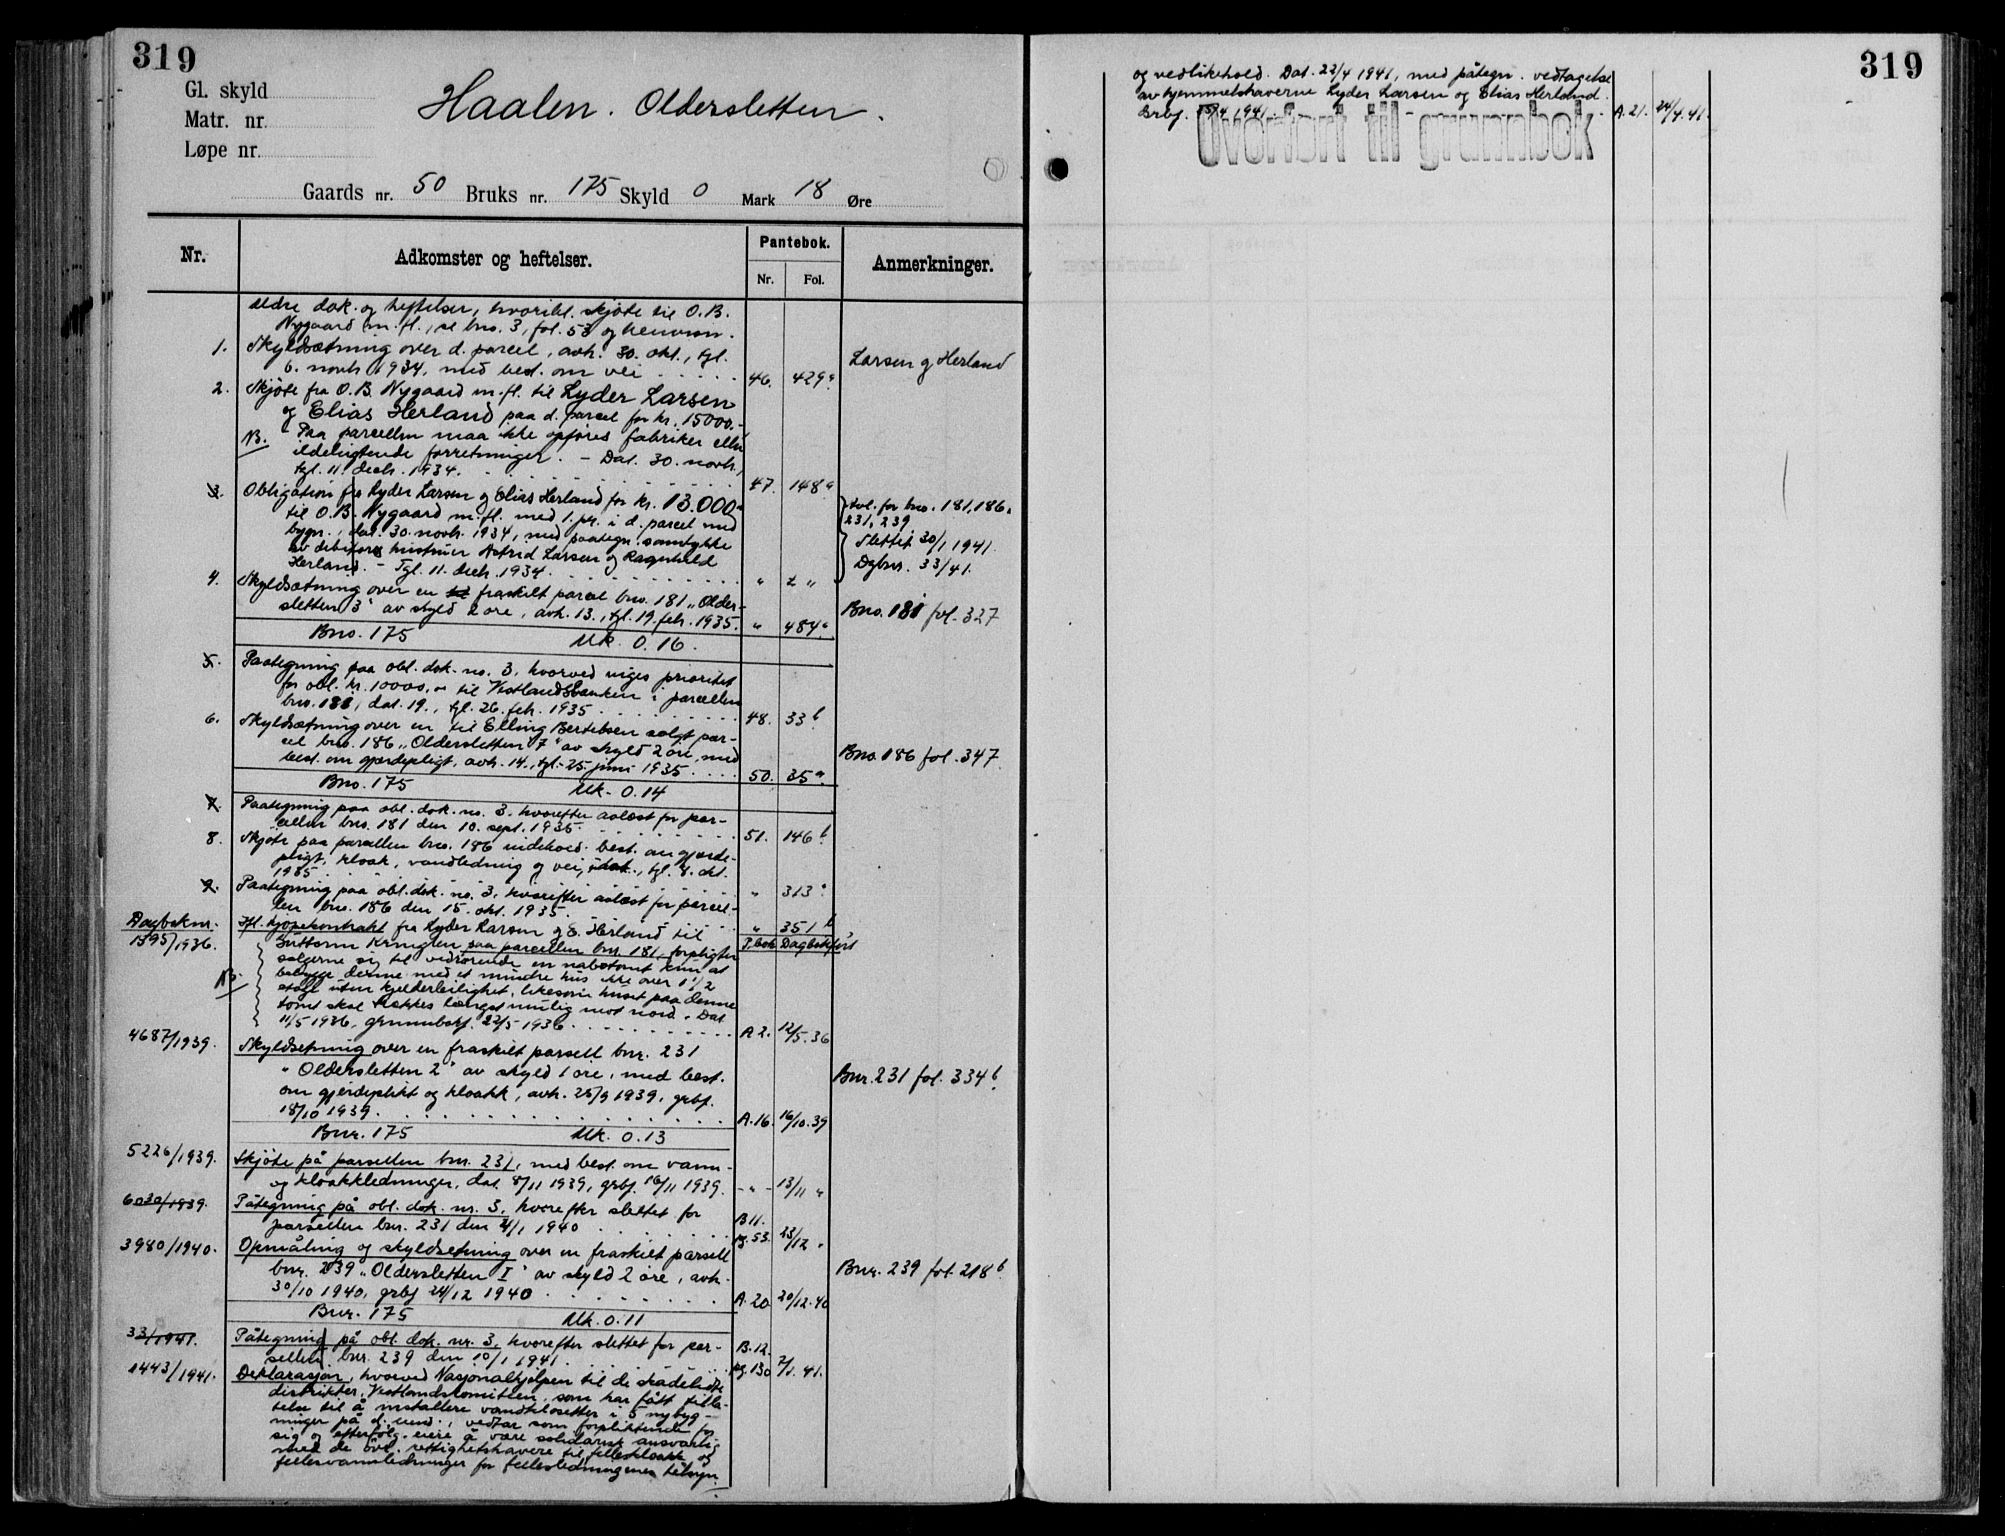 319
Gl. skyld
Matr. nr.
Løpe nr.
Haalen. Oldersletten.
Gaards nr. 50 Bruks nr. 175 Skyld 0 Mark 18 Øre
Nr.
Adkomster og heftelser.
Pantebok.
Nr. Fol.
Anmerkninger.
Ældre dok. og heftelser, hvoribl. skjøte til O.B.
Nygaard m.fl., se bno. 3, fol. 53 og henvisn.
1. Skyldsætning over d. parcel, avh. 30. okt., tgl.
6. novbr. 1934, med best. om vei . . . . . 46. 429a
Larsen og Herland
2. Skjøte fra O.B. Nygaard m.fl. til Lyder Larsen
og Elias Herland paa d. parcel for kr. 15000.-
NB. Paa parcellen maa ikke opføres fabriker eller
ildelugtende forretninger. - Dat. 30. novbr.,
tgl. 11. decbr. 1934. . . . . . 47. 148a
3. Obligation fra Lyder Larsen og Elias Herland for kr. 13.000.-
til O.B. Nygaard m.fl. med 1. pr. i d. parcel med
bygn., dat. 30. novbr. 1934, med paategn. samtykke
av debitorers hustruer Astrid Larsen og Ragnhild
Herland. - Tgl. 11. decbr. 1934. . . . . .
kvl. for bno. 181, 186,
231, 239
Slettet 30/1 1941.
Dgbnr. 33/41.
4. Skyldsætning over en fraskilt parcel bno. 181 "Older-
sletten 3" av skyld 2 øre, avh. 13., tgl. 19. feb. 1935. " 484a
Bno. 181 fol. 327
Bno. 175 Mk. 0.16.
5. Paategning paa obl. dok. no. 3, hvorved viges prioritet
for obl. kr. 10000.- til Vestlandsbanken i parcellen
bno. 181, dat. 19., tgl. 26. feb. 1935 . . . . 48. 33b
6. Skyldsætning over en til Elling Bertelsen solgt par-
cel bno. 186 "Oldersletten 7" av skyld 2 øre, med
best. om gjerdepligt, avh. 14., tgl. 25. juni 1935 . . . . 50. 35a
Bno. 186 fol. 347.
Bno. 175 Mk. 0.14
7. Paategning paa obl. dok. no. 3, hvorefter avløst for par-
cellen bno. 181 den 10. sept. 1935. . . . . 51. 146b
8. Skjøte paa parcellen bno. 186 indehold. best. om gjerde-
pligt, kloak, vandledning og vei, tgl. 8. okt.
1935 . . . . . " 313a
9. Paategning paa obl. dok. no. 3, hvorefter avløst for parcel-
len bno. 186 den 15. okt. 1935. . . . . " 351b
Dagboknr.
1395/1936.
Ifl. kjøpekontrakt fra Lyder Larsen og E. Herland til
P.bok Dagbokført
Guttorm Kringlen paa parcellen bnr. 181, forpligter
sælgerne sig til vedrørende en nabotomt kun at
bebygge denne med et mindre hus ikke over 1 1/2
NB.
etage uten kjelderleilighet, likesom huset paa denne
tomt skal trækkes længst mulig mot nord. Dat.
11/5 1936, grunnbokf. 22/5 1936 . . . . . A 2. 12/5.36
4687/1939. Skyldsetning over en fraskilt parsell bnr. 231
"Oldersletten 2" av skyld 1 øre, med best.
om gjerdeplikt og kloakk, avh. 25/9 1939, grbf.
18/10 1939. . . . . . A.16. 16/10.39
Bnr. 231 fol. 334b
Bnr. 175 Mk. 0.13
5226/1939. Skjøte på parsellen bnr. 231, med best. om vann-
og kloakkledninger, dat. 8/11 1939, grbf. 16/11 1939. - " - 13/11 "
6030/1939. Påtegning på obl. dok. nr. 3, hvorefter slettet for
parsellen bnr. 231 den 4/1 1940 . . . . . B 11. pg. 53. 23/12 "
3980/1940. Opmåling og skyldsetning over en fraskilt parsell
bnr. 239 "Oldersletten I" av skyld 2 øre, avh.
30/10 1940, grbf 24/12 1940 . . . . . A.20. 20/12.40
Bnr. 239 fol. 218b
Bnr. 175 Mk. 0.11
33/1941. Påtegning på obl. dok. nr. 3, hvorefter slettet for par-
sellen bnr. 239 den 10/1 1941. . . . . B.12. pg. 130 7/1.41.
1443/1941. Deklarasjon, hvorved Nasjonalhjelpen til de skadelidte
distrikter, Vestlandskomitéen, som har fått tilla-
telse til å installere vandklosetter i 5 nybyg-
ninger på d. eiend., vedtar som forpliktende for
sig og efterfølg. eiere å være solidarisk ansvarlig
med de øvr. rettighetshavere til felleskloakk og
fellesvannledninger for fellesledningenes tilsyn
319
og vedlikehold. Dat. 22/4 1941, med påtegn. vedtagelse
av hjemmelshaverne Lyder Larsen og Elias Herland.
Grbf. 25/4 1941. A.21. 24/4.41.
Overført til grunnbok